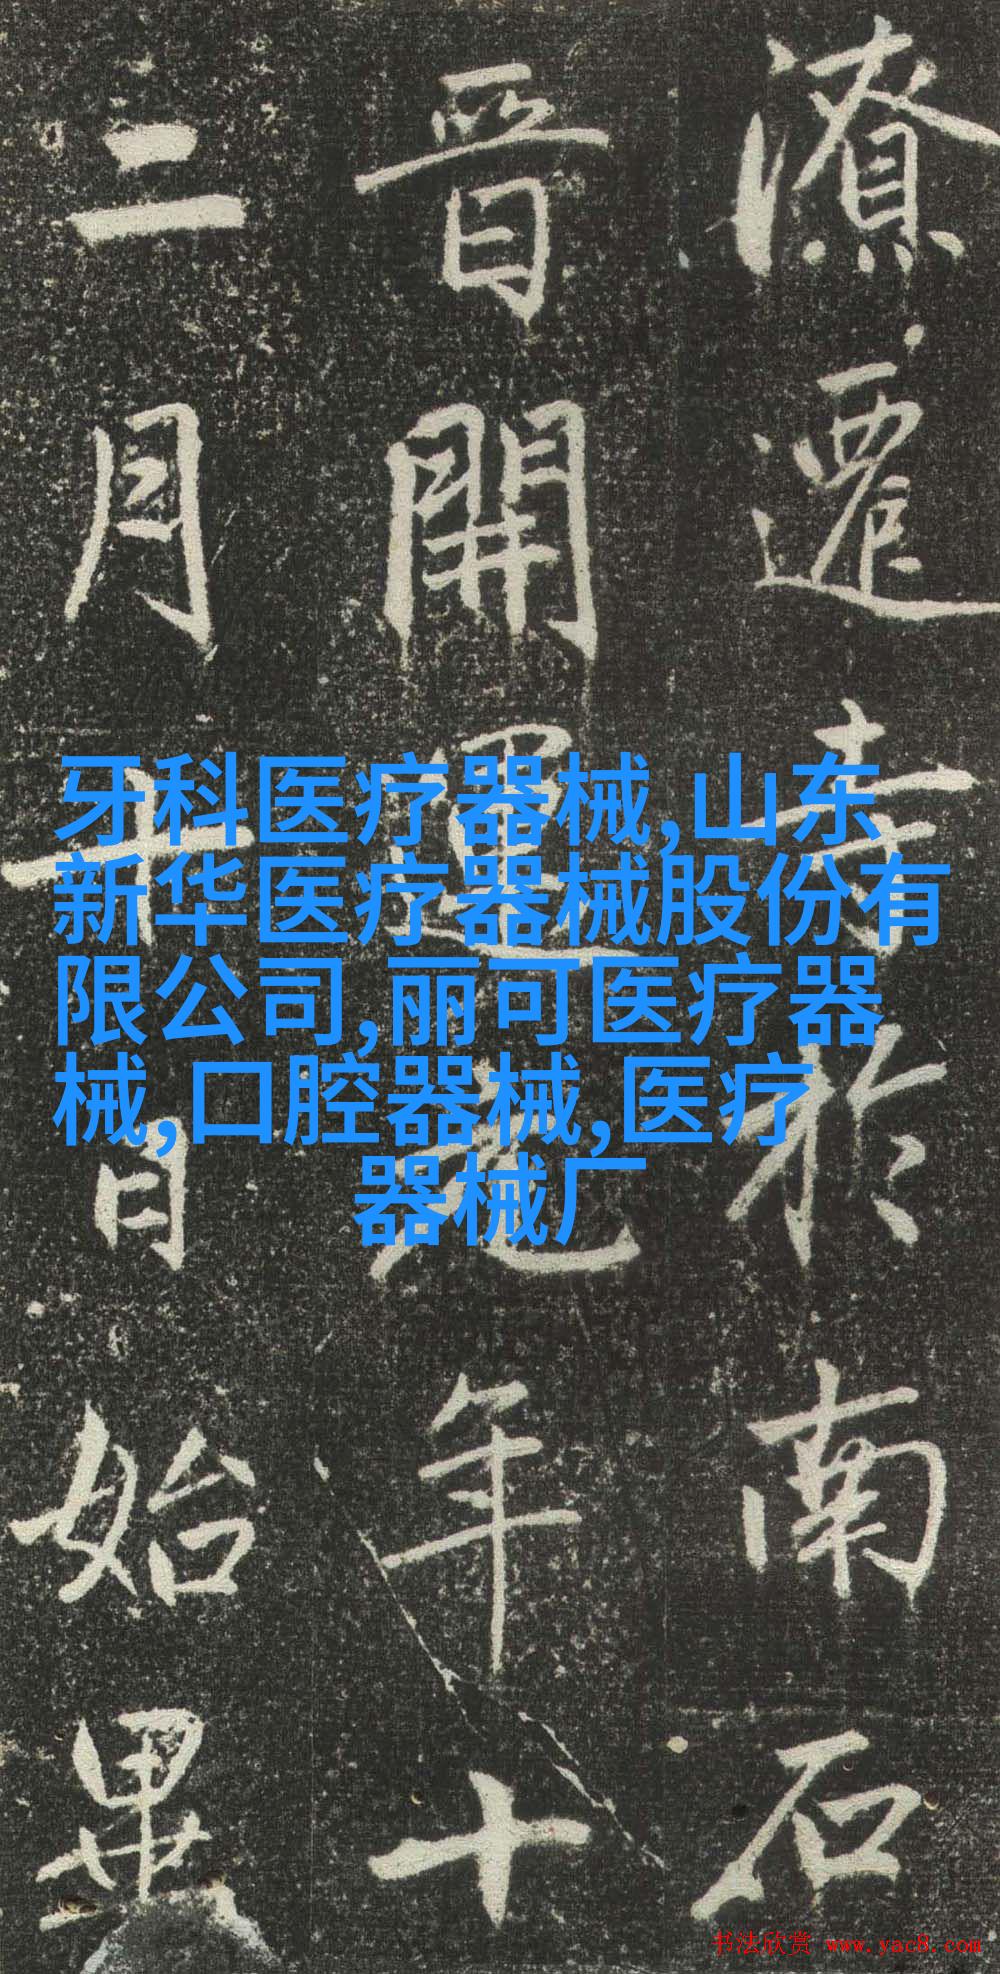 潦遷寺於南石
晉開運元年十
二月十日始畢
牙科医疗器械,山东
新华医疗器械股份有
限公司,丽可医疗器
械,口腔器械,医疗
器械厂
书法欣赏 www.yac8.com